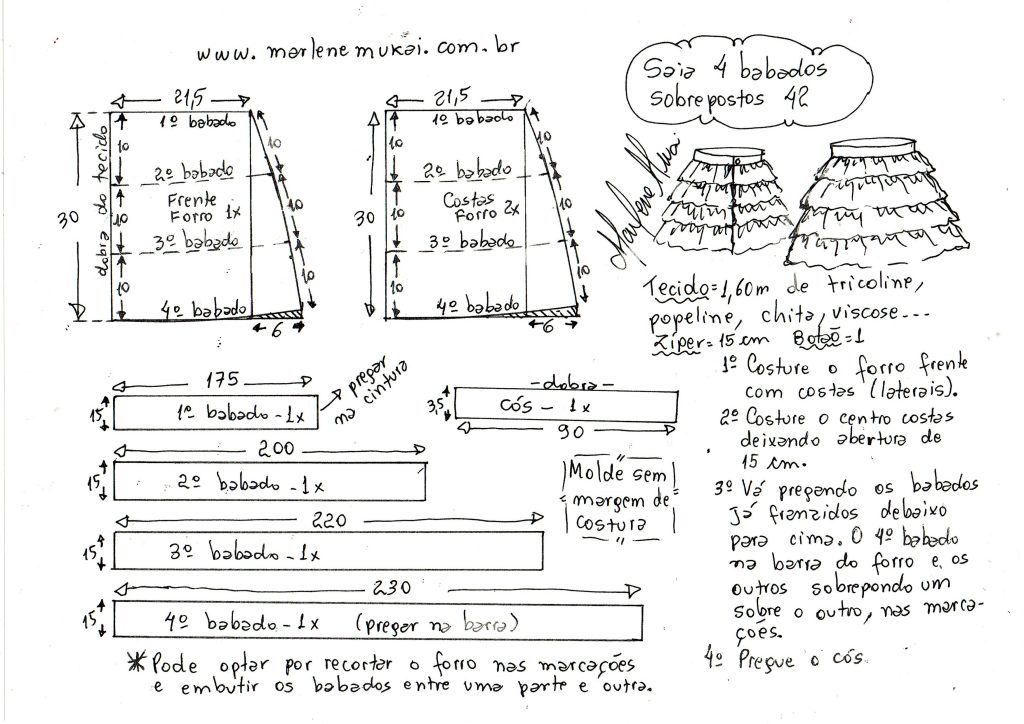 www.marlenemukai.com.br
Saia 4 babados
sobrepostos 42
21,5
1º babado
10
10
2º babado
Frente
Forro 1x
10
10
3º babado
10
10
4º babado
6
30
dobra do tecido
21,5
1º babado
10
10
2º babado
Costas
Forro 2x
10
10
3º babado
10
10
4º babado
6
30
Marlene Mukai
Tecido=1,60m de tricoline,
popeline, chita, viscose...
Zíper=15 cm Botão=1
1º Costure o forro frente
com costas (laterais).
2º Costure o centro costas
deixando abertura de
15 cm.
3º Vá pregando os babados
já franzidos debaixo
para cima. O 4º babado
na barra do forro e, os
outros sobrepondo um
sobre o outro, nas marca-
ções.
4º Pregue o cós.
175
15
1º babado - 1x
pregar
na cintura
-dobra-
3,5
cós - 1x
90
200
15
2º babado - 1x
Molde sem
margem de
costura
220
15
3º babado - 1x
230
15
4º babado - 1x (pregar na barra)
* Pode optar por recortar o forro nas marcações
e embutir os babados entre uma parte e outra.